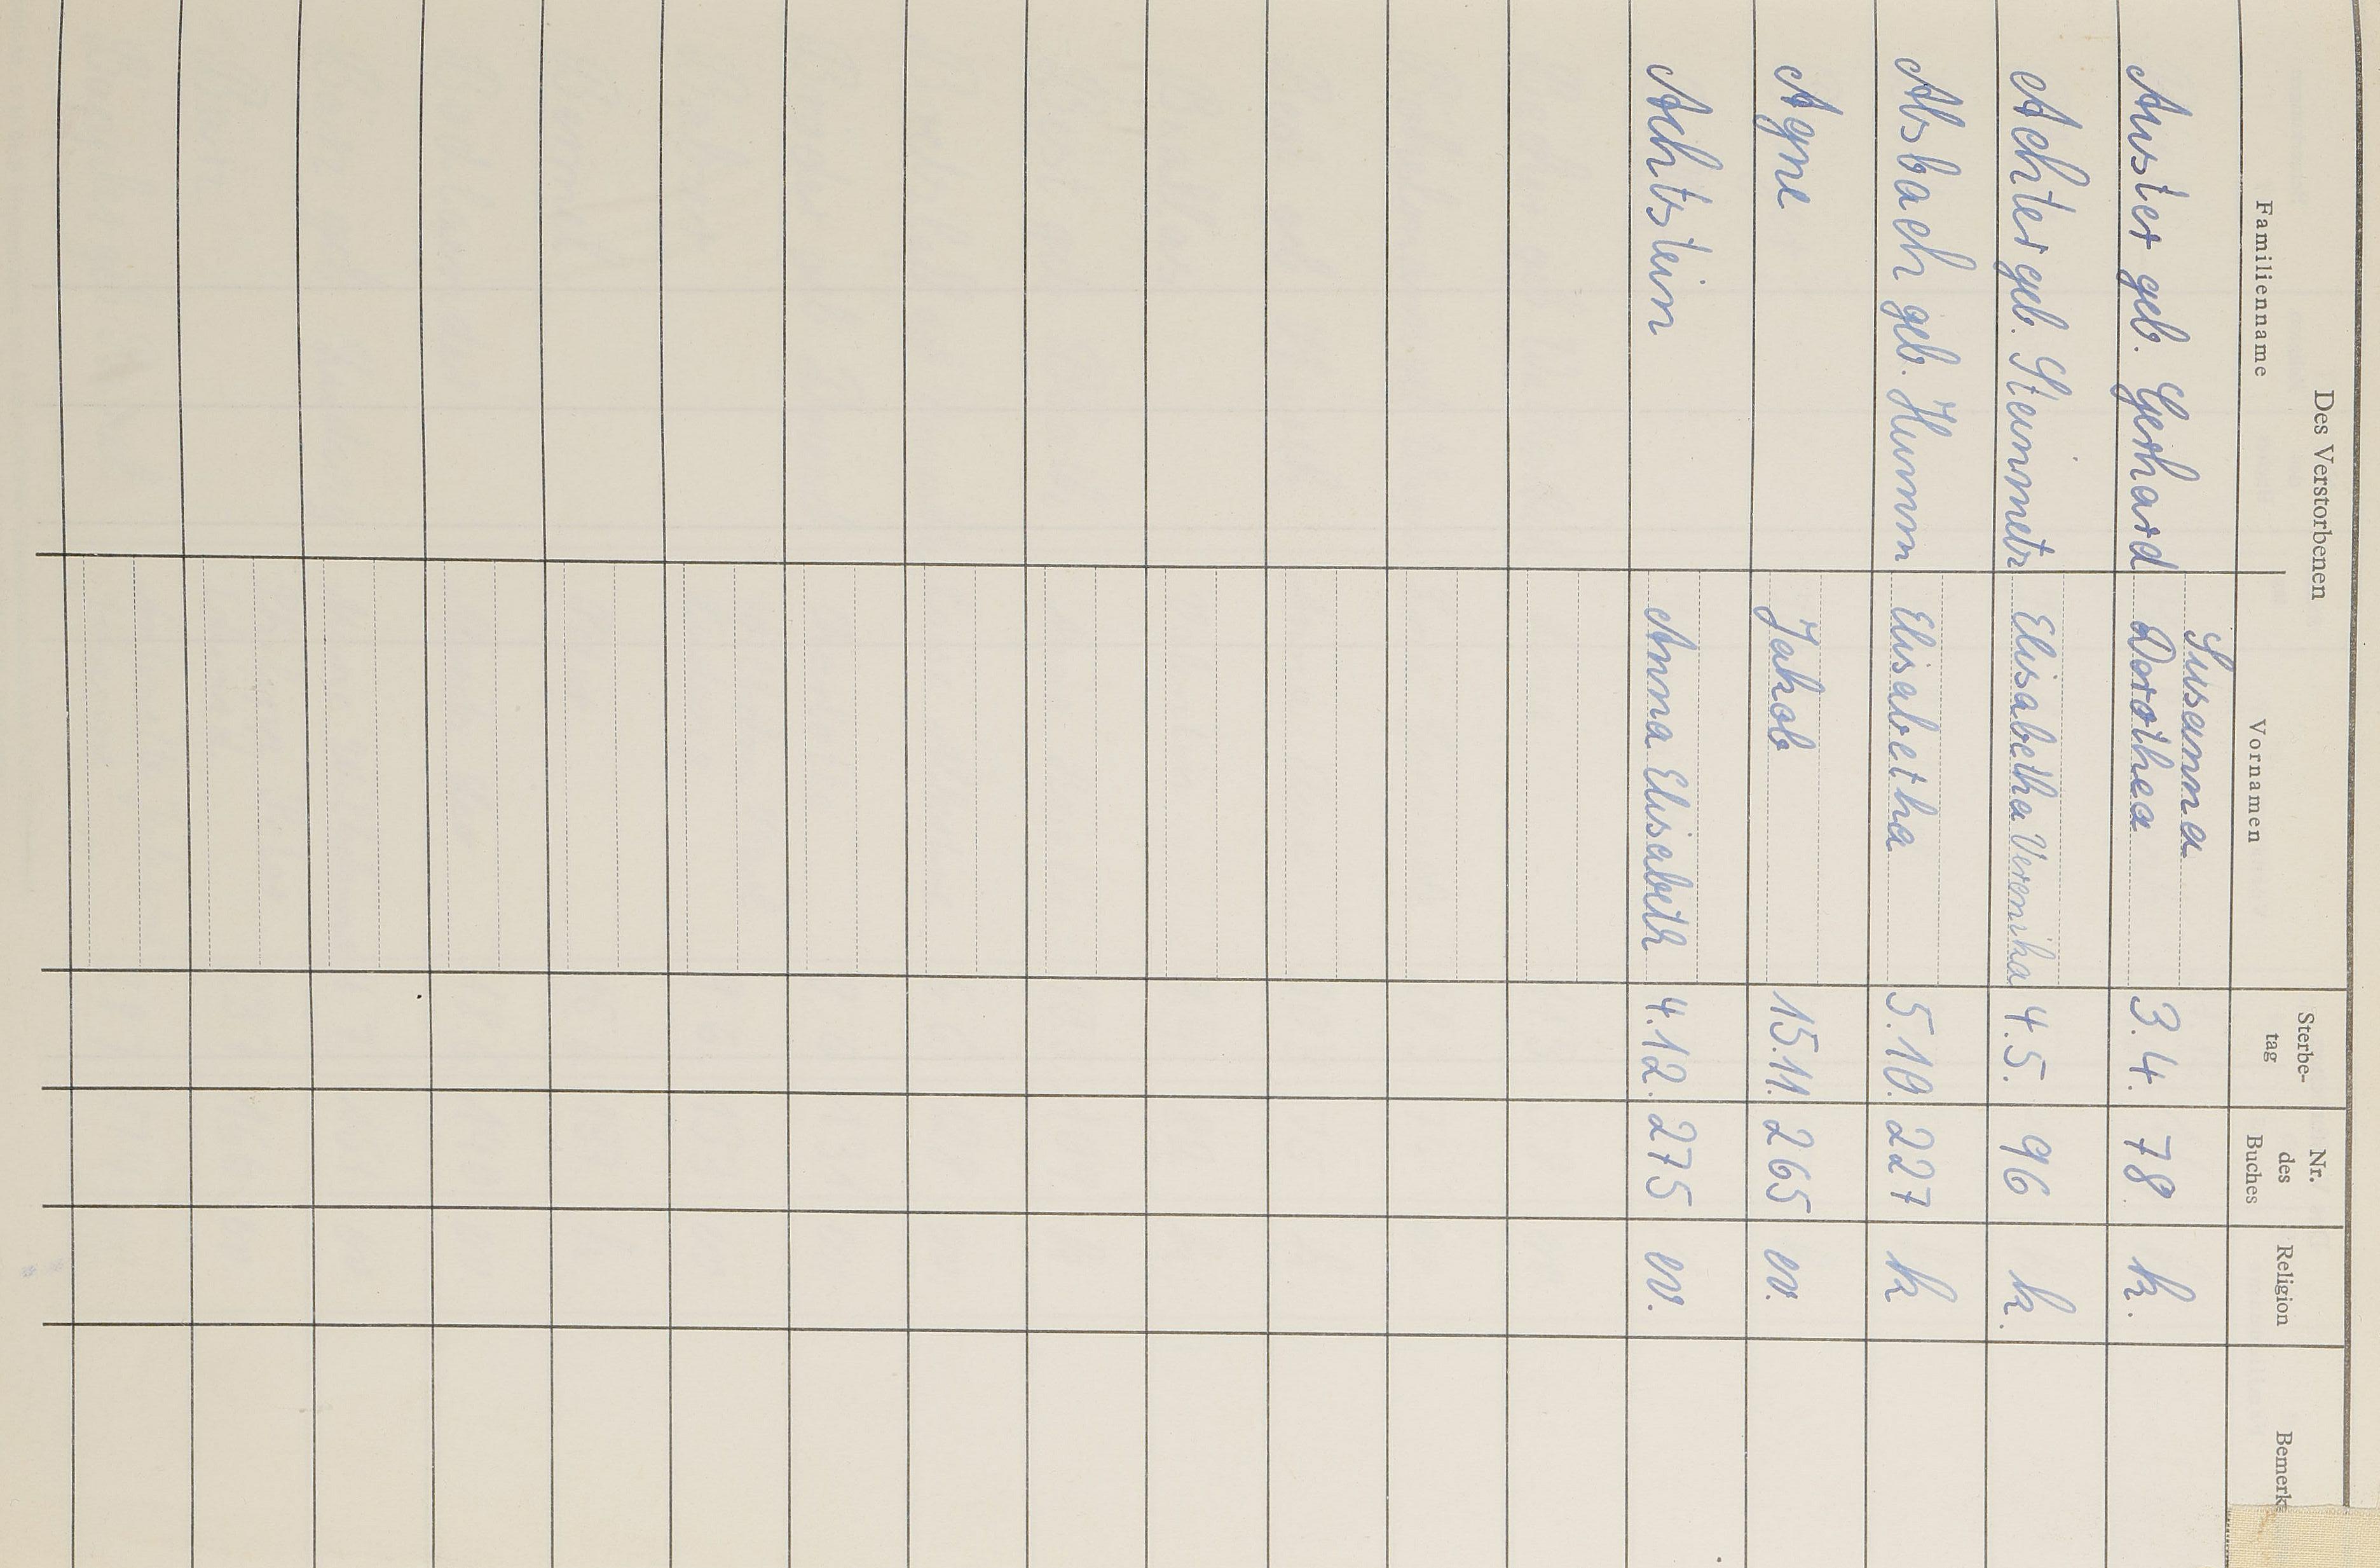 Des Verstorbenen
Familienname Vornamen Sterbe-tag Nr. des Buches Religion Bemerk
Auster geb. Gerhard Susanna Dorothea 3.4. 78 k.
Achter geb. Steinmetz Elisabetha Veronika 4.5. 96 k.
Absbach geb. Humm Elisabetha 5.10. 227 k
Agne Jakob 15.11. 265 ev.
Achtstein Anna Elisabeth 4.12. 275 ev.